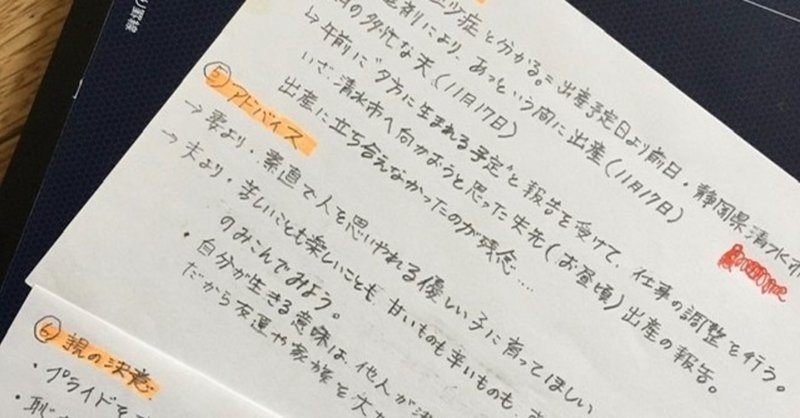 り野線
ミツ症と分かる。＝出産予定日より前日。静岡県清水市
により、あっという間に出産（11月17日）
の多忙な夫（11月17日）
↳午前に"夕方に生まれる予定"と報告を受けて、仕事の調整を行う。
いざ、清水市へ向かおうと思った矢先（お昼頃）出産の報告。
出産に立ち合えなかったのが残念…
⑤アドバイス
→妻より・素直で人を思いやれる優しい子に育ってほしい
→夫より・苦しいことも楽しいことも、甘いものも辛いものも、
のみこんでみよう。
・自分が生きる意味は、他人が
だから友達や家族を大
⑥親の決意
・プライドを
・恥